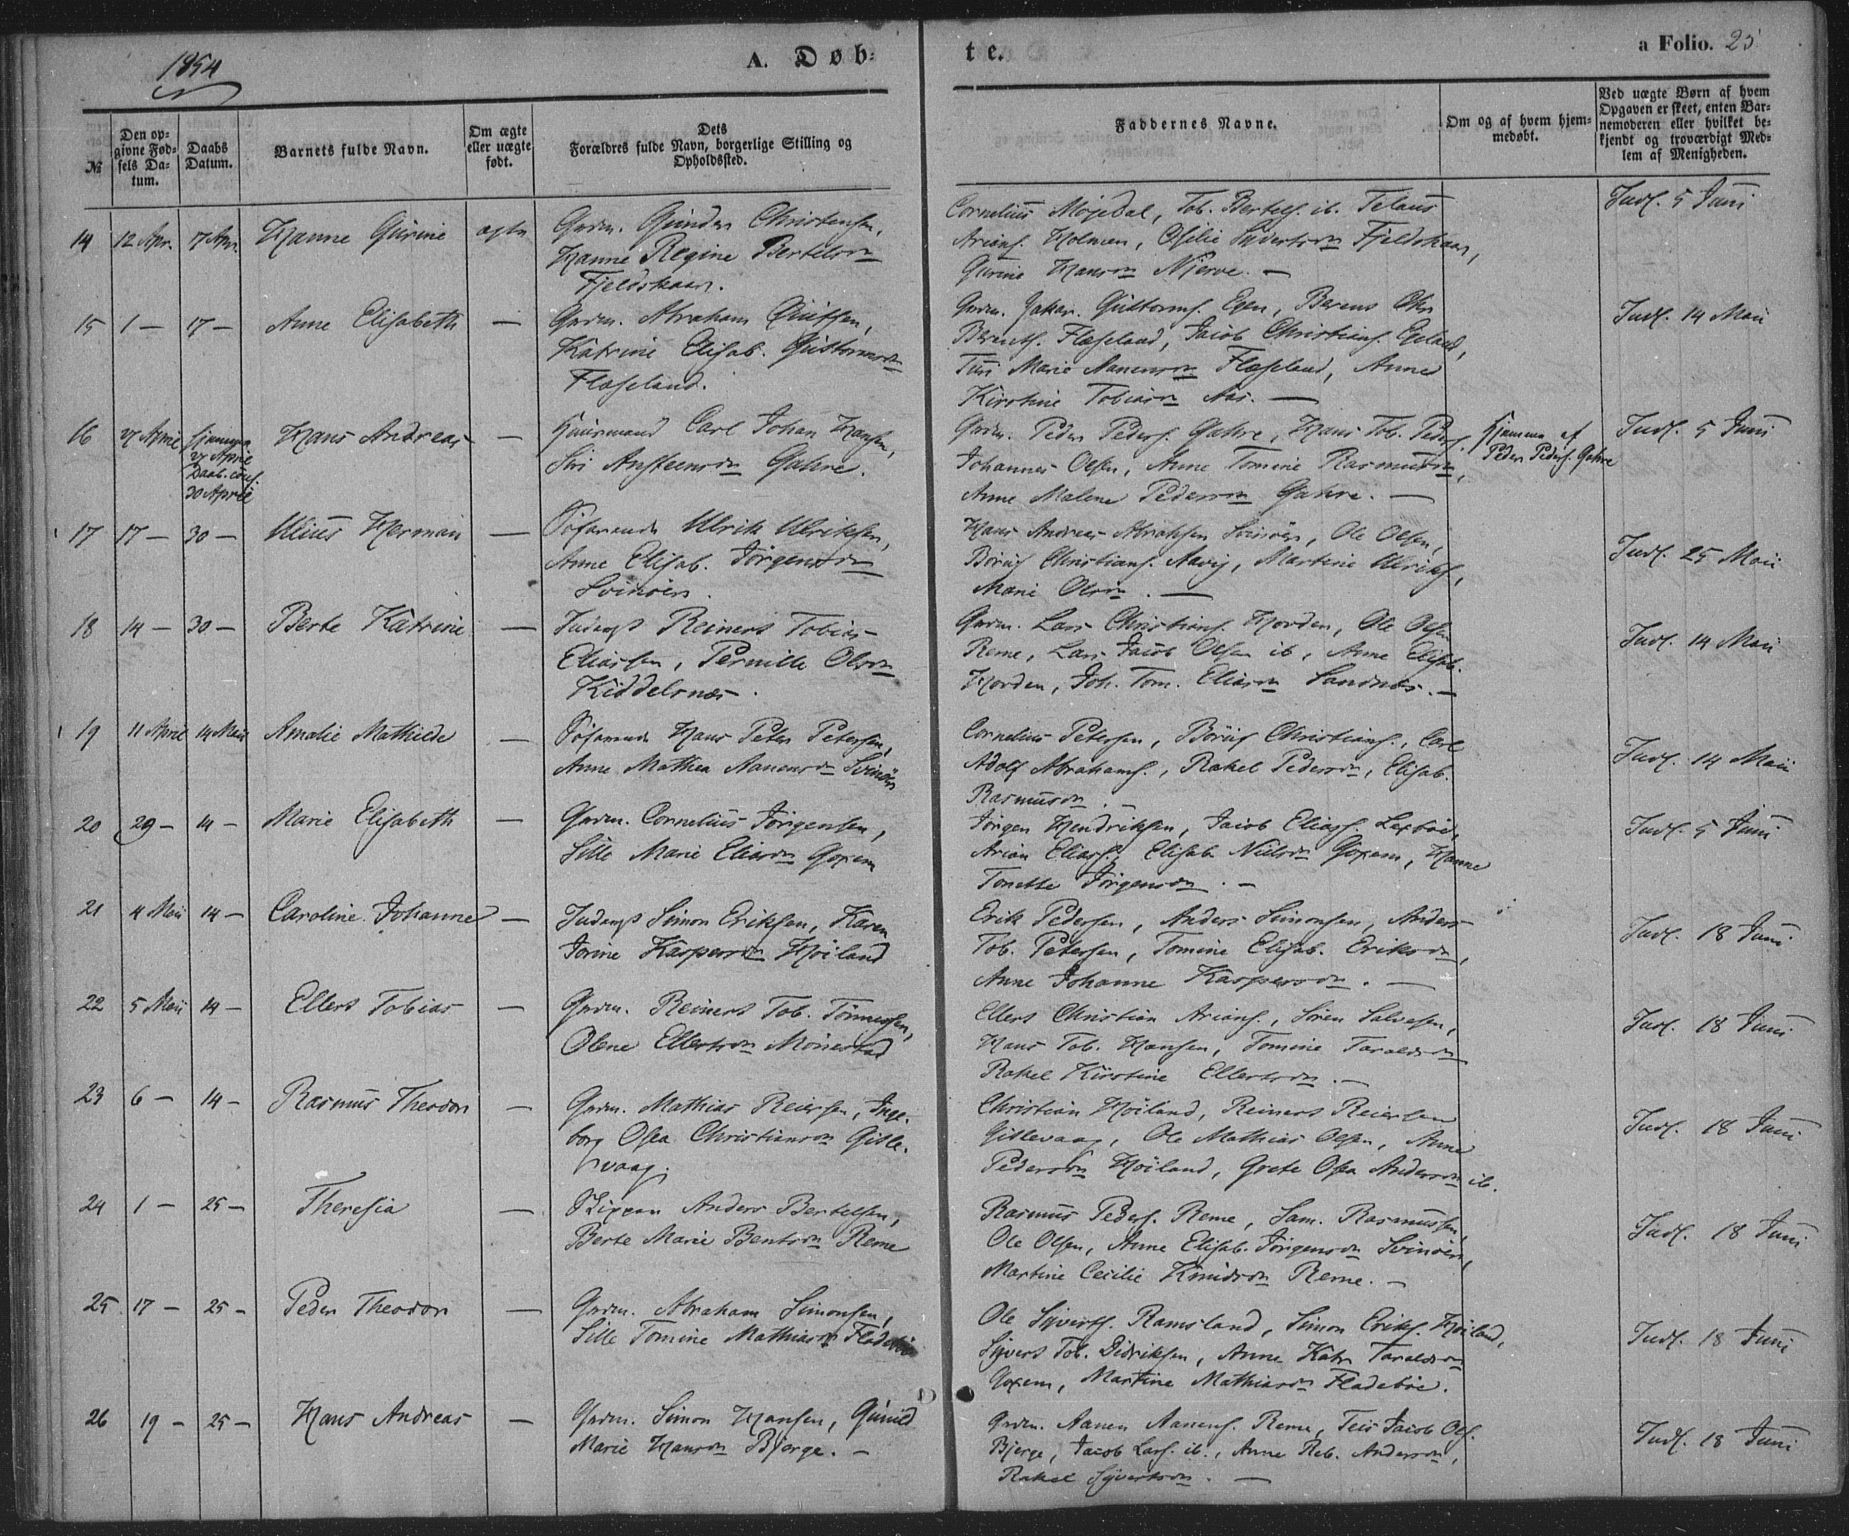 1854
A. Døb-
te.
a Folio. 25
№
Den opgivne Fødsels Datum.
Daabs Datum.
Barnets fulde Navn.
Om ægte eller uægte født.
Dets Forældres fulde Navn, borgerlige Stilling og Opholdssted.
Faddernes Navne.
Om og af hvem hjemmedøbt.
Ved uægte Børn af hvem Opgaven er skeet, enten Barnemoderen eller hvilket bekjendt og troværdigt Medlem af Menigheden.
14 12 Apr. 17 Apr. Hanne Gurine ægte Grdm. Gunder Christensen,
Hanne Regine Bertelsdn
Fjeldskaar.
Cornelius Møgedal, Tob. Bertels. ib. Telaus
Arians. Holmen, Osilie Syvertsdn Fjeldskaar,
Gurine Hansdn Njerve. —
Indf. 5 Juni
15 1 — 17 — Anne Elisabeth — Grdm. Abraham
Katrine Elisab. Guttormsdn
Flaseland.
Grdm. Zakar. Guttorms. Egen, Berens Chr.
Berents. Flaseland, Jacob Christians. Egeland,
Marie Aanensdn Flaseland, Anne
Kirstine Tobiasdn Aas. —
Indf. 14 Mai
16 27 April hjemme
27 April
Daab. conf.
30 April
Hans Andreas — Huusmand Carl Johan Hansen,
Siri Ansteensdn Gahre.
Grdm. Peder Peders. Gahre, Hans Tob. Peders.
Johannes Olsen, Anne Tomine Rasmusdn,
Anne Malene Pedersdn Gahre. —
Hjemme af
Peder Peders. Gahre
Indf. 5 Juni
17 17 — 30 — Ulius Herman — Søfarende Ulrik Ulriksen,
Anne Elisab. Jørgensdn
Svinøer.
Hans Andreas Abrahsen Svinøer, Ole Olsen,
Børuf Christians. Aavig, Martine Ulriks.,
Marie Olsdn. —
Indf. 25 Mai
18 14 — 30 — Berte Katrine — Inderst Reinert Tobias
Eliassen, Pernille Olsdn
Kiddelsnæs.
Grdm. Lars Christians. Horden, Ole Olsen
Reme, Lars Jacob Olsen ib, Anne Elisab.
Horden, Joh. Tom. Eliasdn Sandnæs. —
Indf. 14 Mai
19 11 April 14 Mai Amalie Mathilde — Søfarende Hans Peter Petersen,
Anne Mathea Aanensdn Svinøer
Cornelius Petersen, Børuf Christians., Carl
Adolf Abrahams., Rakel Pedersdn, Elisab.
Rasmusdn. —
Indf. 14 Mai
20 29 — 14 — Marie Elisabeth — Grdm. Cornelius Jørgensen,
Sille Marie Eliasdn Goxem
Jørgen Hendriksen, Jacob Eliass.
Arian Eliass. Elisab. Nielsdn Goxem, Hanne
Tonette Jørgensdn. —
Indf. 5 Juni
21 4 Mai 14 — Caroline Johanne — Inderst Simon Eriksen, Karen
Jorine Kaspersdn Høiland
Erik Pedersen, Anders Simonsen, Anders
Tob. Petersen, Tomine Elisab. Eriksdn,
Anne Johanne Kaspersdn. —
Indf. 18 Juni
22 5 Mai 14 — Ellert Tobias — Grdm. Reinert Tob. Tønnessen,
Olene Ellertsdn Mønestad
Ellert Christian Arians., Søren Salvesen,
Hans Tob. Hansen, Tomine Taraldsdn
Rakel Kirstine Ellertsdn. —
Indf. 18 Juni
23 6 — 14 — Rasmus Theodor — Grdm. Mathias Reiersen, Inge-
borg Osea Christiansdn Gitle-
vaag.
Christian Høiland, Reinert Reiersen
Gitlevaag, Ole Mathias Olsen, Anne
Pedersdn Høiland, Grete Osea Andersdn ib.
Indf. 18 Juni
24 1 — 25 — Theresia — Skipper Anders Bertelsen,
Berte Marie Bentsdn Reme
Rasmus Peders. Reme, Sam. Rasmussen,
Ole Olsen, Anne Elisab. Jørgensdn Svinøer,
Martine Cecilie Knudsdn Reme. —
Indf. 18 Juni
25 17 — 25 — Peder Theodor — Grdm. Abraham Simonsen,
Sille Tomine Mathiasdn Fladebøe
Ole Syverts. Ramsland, Simon Eriks. Høiland,
Syvert Tob. Didriksen, Anne Katr. Taraldsdn
Goxem, Martine Mathiasdn Fladebøe.
Indf. 18 Juni
26 19 — 25 — Hans Andreas — Grdm. Simon Hansen, Gunild
Marie Hansdn Bjerge. —
Grdm. Aanen Aanens. Reme, Teis Jacob Ols.
Bjerge, Jacob Lars. ib., Anne Reb. Andersdn,
Rakel Syvertsdn. —
Indf. 18 Juni